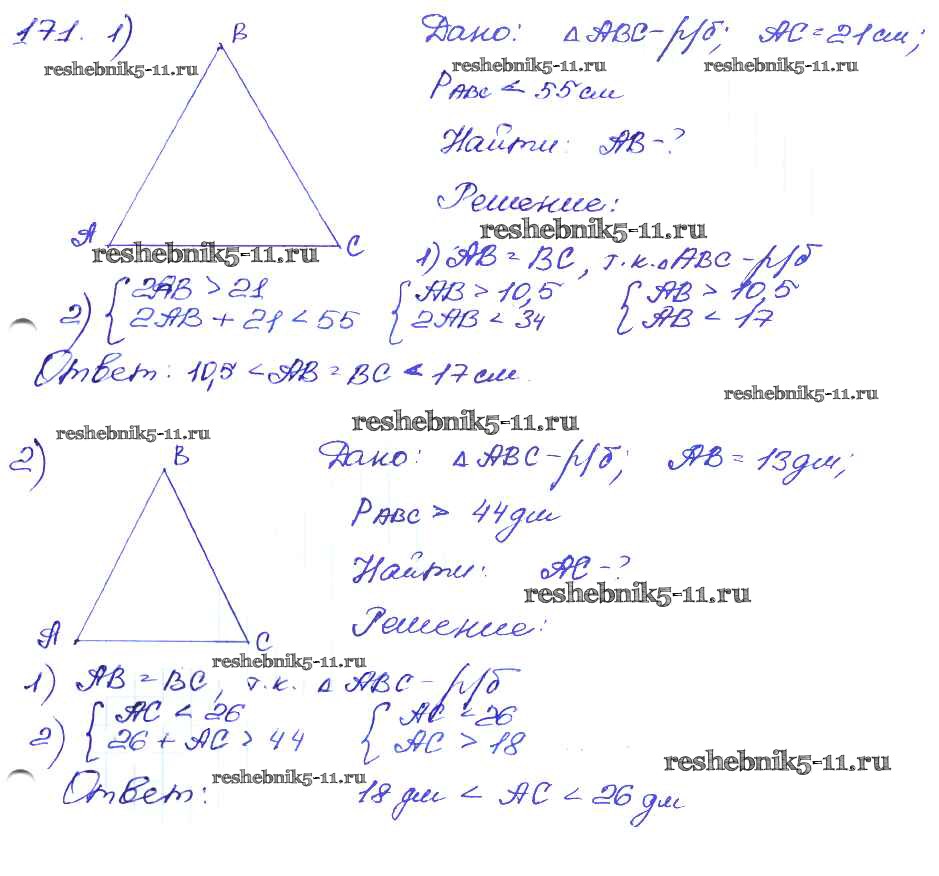 171. 1) B Дано: △ABC-р/б; AC=21см;
reshebnik5-11.ru reshebnik5-11.ru reshebnik5-11.ru
PABC < 55см
Найти: AB-?
Решение:
reshebnik5-11.ru
A C
reshebnik5-11.ru
1) AB=BC, т.к. △ABC-р/б
2) { 2AB > 21 { AB > 10,5 { AB > 10,5
2AB + 21 < 55 2AB < 34 AB < 17
Ответ: 10,5 < AB = BC < 17см.
reshebnik5-11.ru
reshebnik5-11.ru
reshebnik5-11.ru
2) B Дано: △ABC-р/б; AB = 13дм;
PABC > 44дм
Найти: AC-?
reshebnik5-11.ru
Решение:
A C
reshebnik5-11.ru
1) AB = BC, т.к. △ABC-р/б
2) { AC < 26 { AC < 26
26 + AC > 44 AC > 18
reshebnik5-11.ru
reshebnik5-11.ru
Ответ: 18 дм < AC < 26 дм